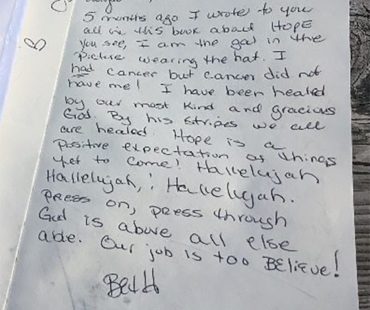 5 months ago I wrote to you
all in this book about HOPE
you see, I am the gal in the
picture wearing the hat. I
had cancer but cancer did not
have me! I have been healed
by our most kind and gracious
God. By his stripes we all
are healed. Hope is a
positive expectation of things
yet to come! Hallelujah
Hallelujah,! Hallelujah.
press on, press through
God is above all else
able. Our job is too BElieve!
Beth